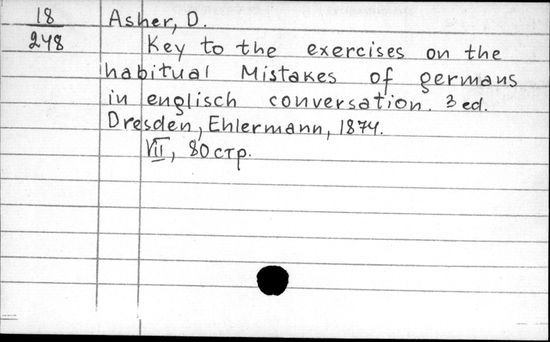 18
248
Asher, D.
Key to the exercises on the
habitual Mistakes of germans
in englisch conversation. 3 ed.
Dresden, Ehlermann, 1874.
VII, 80 стр.